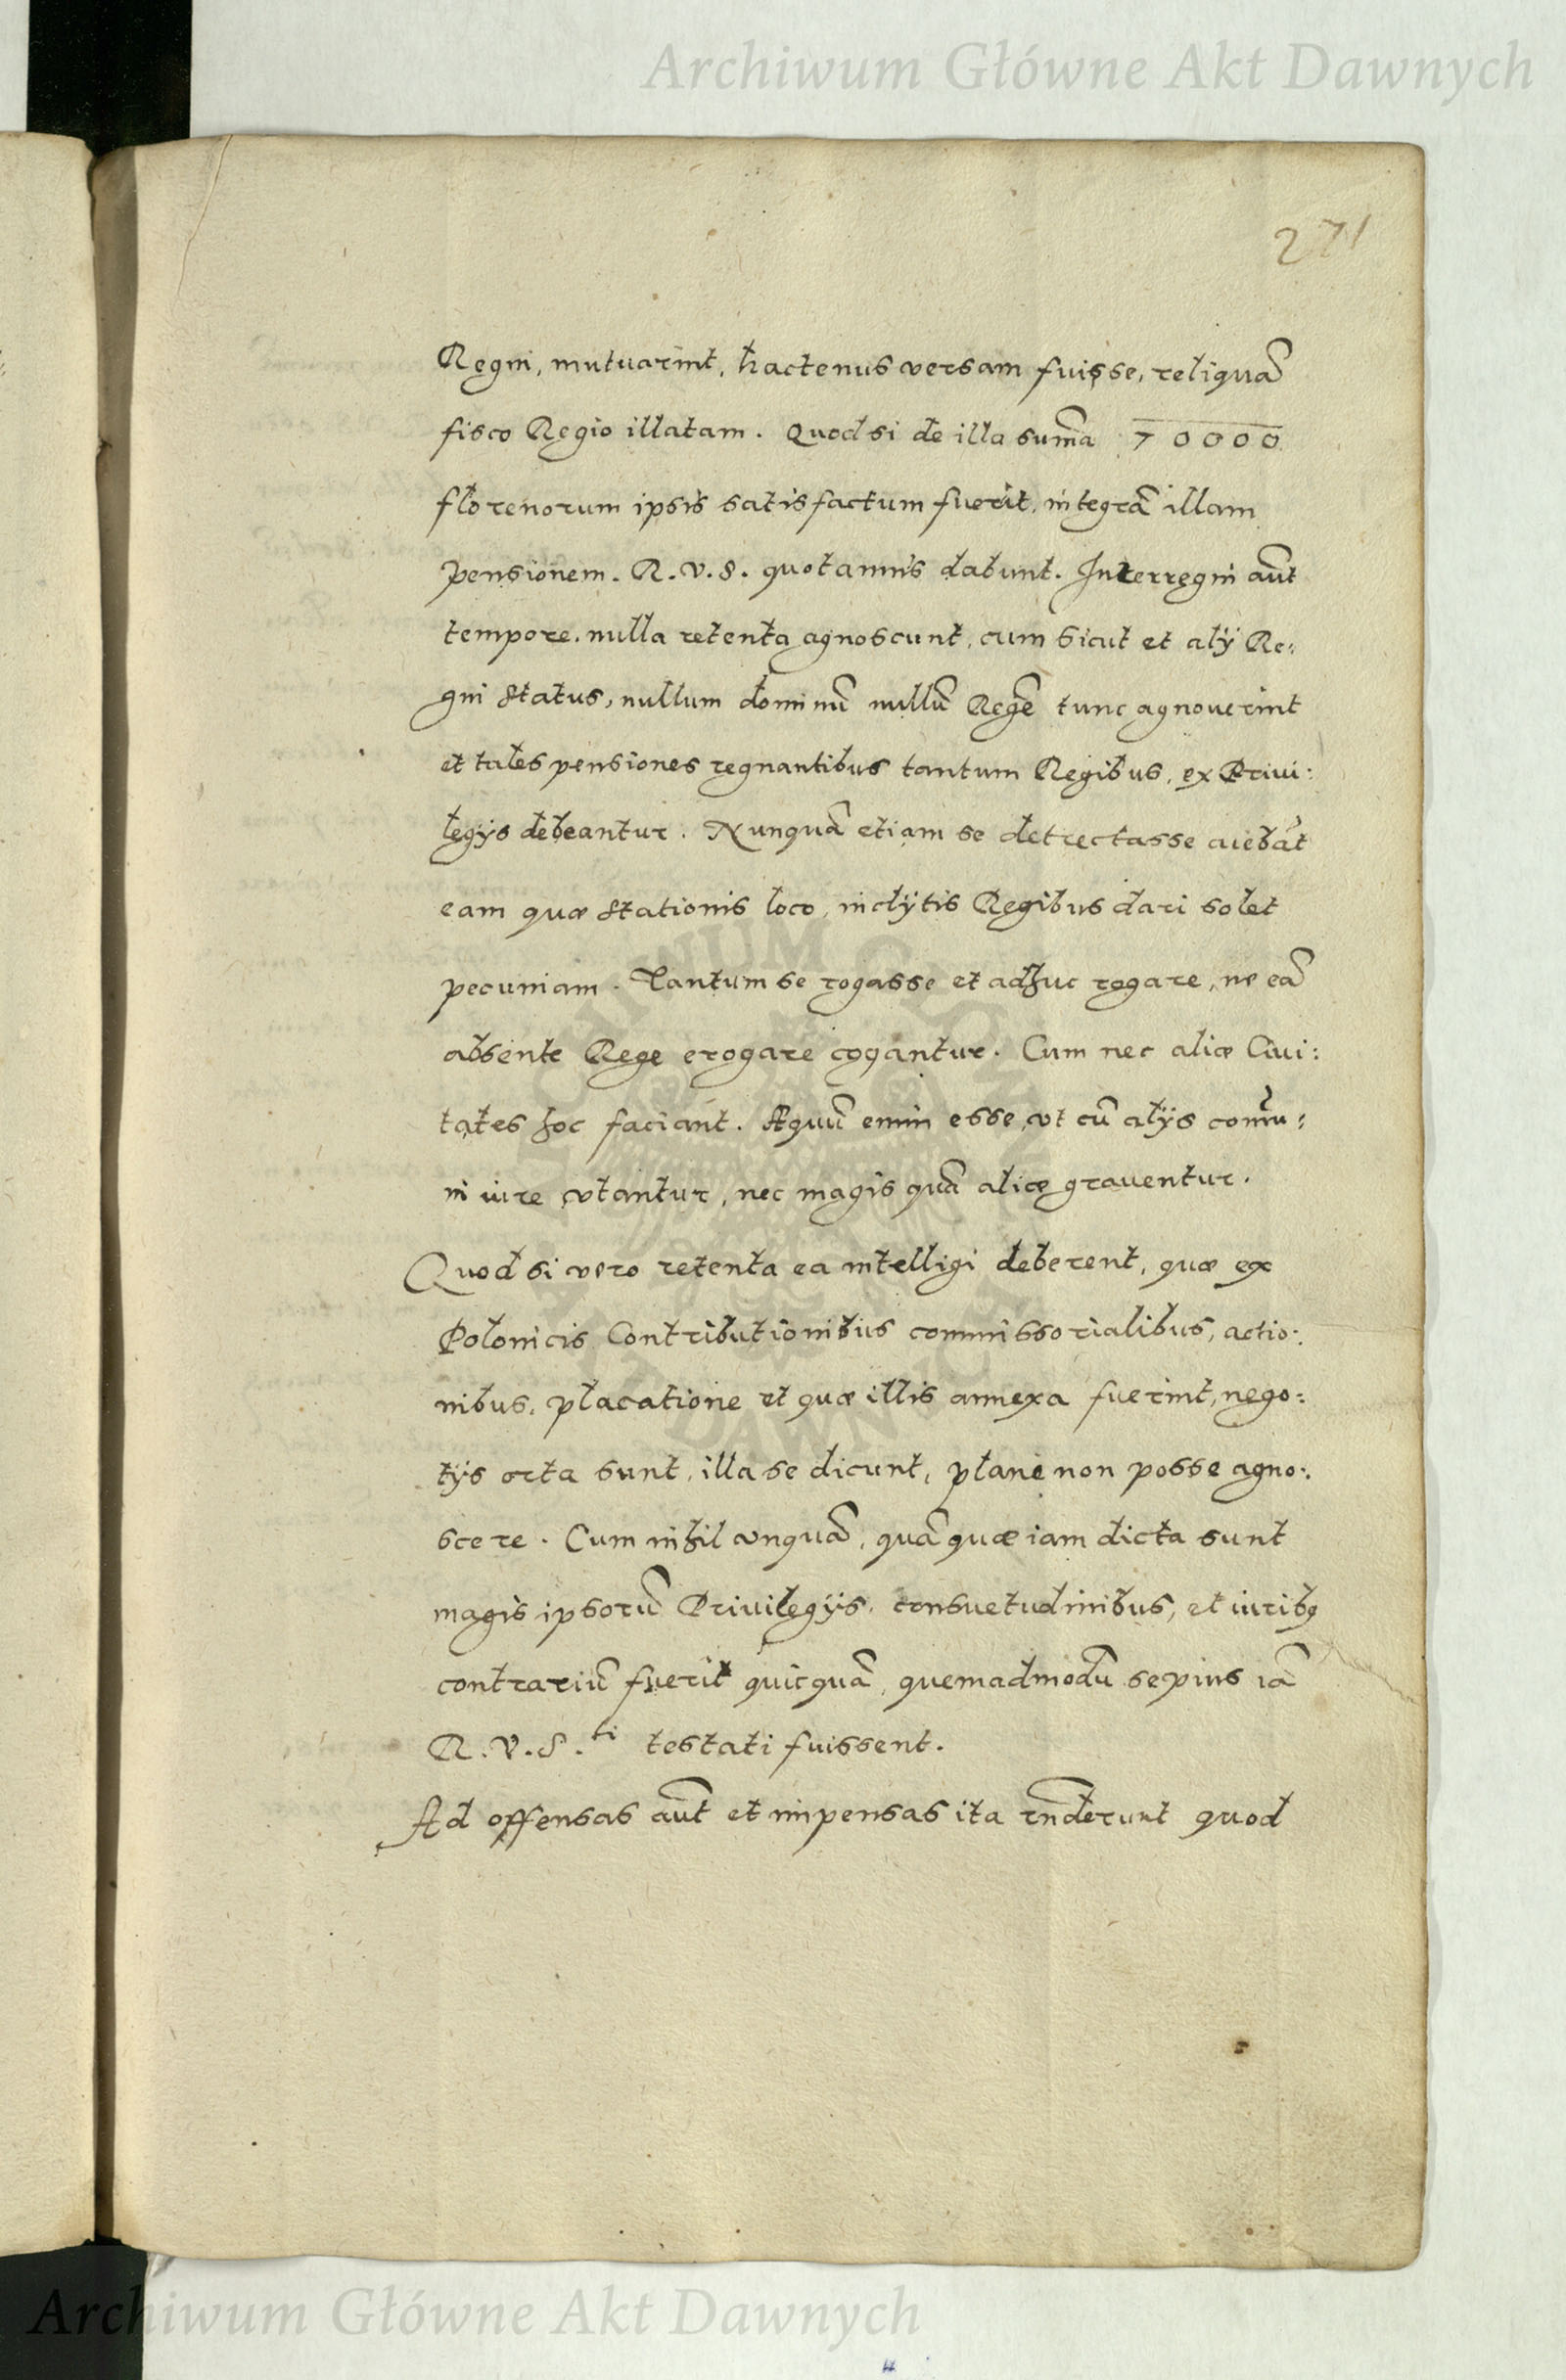 Archiwum Główne Akt Dawnych
271
Regni, mutuarint, hactenus versam fuisse, reliquā
fisco Regio illatam. Quod si de illa sum̄a 70000
florenorum ipsis satisfactum fuerit, integrā illam
pensionem. R. V. S. quotannis dabunt. Interregni aūt
tempore, nulla retenta agnoscunt, cum sicut et alÿ Re:
gni Status, nullum dominū nullū Regē tunc agnouerint
et tales pensiones regnantibus tantum Regibus, ex Priui:
legÿs debeantur. Nunquā etiam se detrectasse aiebāt
eam quæ stationis loco, inclÿtis Regibus dari solet
pecuniam. Tantum se rogasse et adhuc rogare, ne eā
absente Rege erogare cogantur. Cum nec aliæ Ciui:
tates hoc faciant. Æquū enim esse, vt cū alÿs com̄u:
ni iure vtantur, nec magis quā aliæ grauentur.
Quod si vero retenta ea intelligi deberent, quæ ex
Polonicis Contributionibus commissorialibus, actio:
nibus, placatione et quæ illis annexa fuerint, nego:
tÿs orta sunt, illa se dicunt, plane non posse agno:
scere. Cum nihil vnquā, quā quæ iam dicta sunt
magis ipsorū Priuilegÿs, consuetudinibus, et iuribꝫ
contrariū fuerit quicquā, quemadmodū sepius iā
R. V. S.ti testati fuissent.
Ad offensas aūt et impensas ita rn̄derunt quod
Archiwum Główne Akt Dawnych